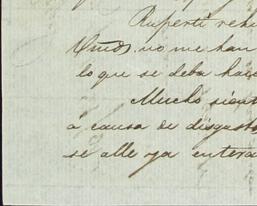 Ruperti rehu
Vmds. no me han
lo que se deba hac
Mucho sient
á causa de disgusto
se alle ya entera